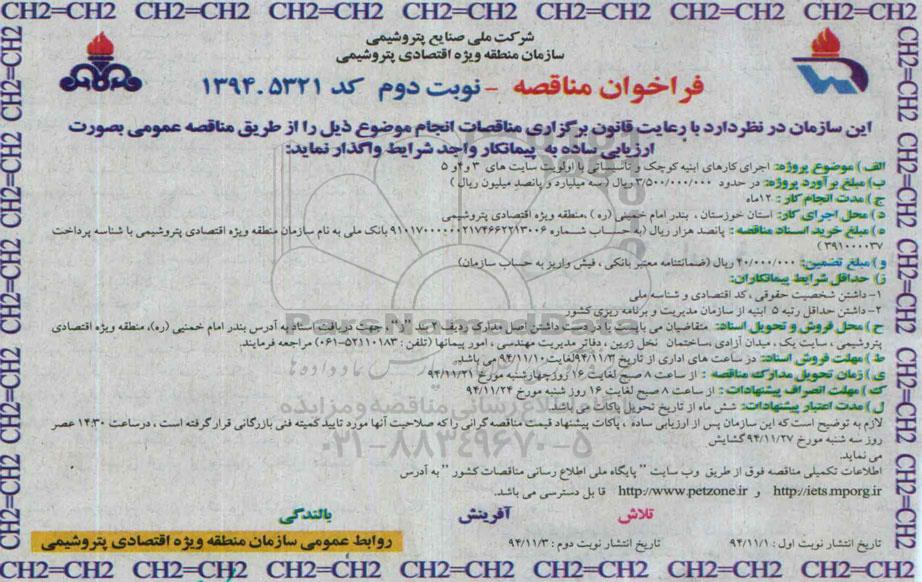 CH2=CH2 CH2=CH2 CH2=CH2 CH2=CH2 CH2=CH2 CH2=CH2 CH2=CH2
شرکت ملی صنایع پتروشیمی
سازمان منطقه ویژه اقتصادی پتروشیمی
فراخوان مناقصه - نوبت دوم کد ۱۳۹۴.۵۳۲۱
این سازمان در نظر دارد با رعایت قانون برگزاری مناقصات انجام موضوع ذیل را از طریق مناقصه عمومی بصورت
ارزیابی ساده به پیمانکار واجد شرایط واگذار نماید:
الف) موضوع پروژه: اجرای کارهای ابنیه کوچک و تأسیساتی با اولویت سایت های ۳ و۴و ۵
ب) مبلغ برآورد پروژه: در حدود ۳/۵۰۰/۰۰۰/۰۰۰ ریال ( سه میلیارد و پانصد میلیون ریال )
ج) مدت انجام کار : ۱۲ماه
د) محل اجرای کار: استان خوزستان ، بندر امام خمینی (ره) ،منطقه ویژه اقتصادی پتروشیمی
ه) مبلغ خرید اسناد مناقصه : پانصد هزار ریال (به حساب شماره ۹۱۰۱۷۰۰۰۰۰۰۲۱۷۴۶۶۲۲۱۳۰۰۶ بانک ملی به نام سازمان منطقه ویژه اقتصادی پتروشیمی با شناسه پرداخت
۳۹۱۰۰۰۰۳۷ )
و) مبلغ تضمین: ۴۰/۰۰۰/۰۰۰ ریال (ضمانتنامه معتبر بانکی ، فیش واریز به حساب سازمان)
ز) حداقل شرایط پیمانکاران:
۱- داشتن شخصیت حقوقی ، کد اقتصادی و شناسه ملی
۲- داشتن حداقل رتبه ۵ ابنیه از سازمان مدیریت و برنامه ریزی کشور
ح) محل فروش و تحویل اسناد: متقاضیان می بایست با در دست داشتن اصل مدارک ردیف ۲ بند "ز" ، جهت دریافت اسناد به آدرس بندر امام خمینی (ره)، منطقه ویژه اقتصادی
پتروشیمی ، سایت یک ، میدان آزادی ،ساختمان نخل زرین ، دفاتر مدیریت مهندسی ، امور پیمانها (تلفن : ۵۲۱۱۰۱۸۳-۰۶۱) مراجعه فرمایند.
ط) مهلت فروش اسناد: در ساعت های اداری از تاریخ ۹۴/۱۱/۳لغایت۹۴/۱۱/۱۰ می باشد.
ی) زمان تحویل مدارک مناقصه : از ساعت ۸ صبح لغایت ۱۶ روز چهارشنبه مورخ ۹۴/۱۱/۲۱
ک) مهلت انصراف پیشنهادات : از ساعت ۸ صبح لغایت ۱۶ روز شنبه مورخ ۹۴/۱۱/۲۴
ل) مدت اعتبار پیشنهادات: شش ماه از تاریخ تحویل پاکات می باشد.
لازم به توضیح است که این سازمان پس از ارزیابی ساده ، پاکات پیشنهاد قیمت مناقصه گرانی را که صلاحیت آنها مورد تایید کمیته فنی بازرگانی قرار گرفته است ، در ساعت ۱۴:۳۰ عصر
روز سه شنبه مورخ ۹۴/۱۱/۲۷ گشایش
می نماید.
اطلاعات تکمیلی مناقصه فوق از طریق وب سایت " پایگاه ملی اطلاع رسانی مناقصات کشور " به آدرس
http://iets.mporg.ir و http://www.petzone.ir قابل دسترسی می باشد.
تلاش آفرینش بالندگی
تاریخ انتشار نوبت اول : ۹۴/۱۱/۱ تاریخ انتشار نوبت دوم : ۹۴/۱۱/۳ روابط عمومی سازمان منطقه ویژه اقتصادی پتروشیمی
CH2=CH2 CH2=CH2 CH2=CH2 CH2=CH2 CH2=CH2 CH2=CH2 CH2=CH2
ParsNamadData
اطلاع رسانی مناقصه و مزایده
۰۲۱-۸۸۳۴۹۶۷۰-۵